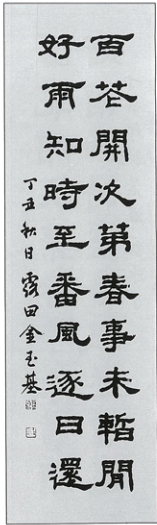 百花開次第春事未暫閒
好雨知時至番風逐日還
丁丑秋日 霞田金玉基